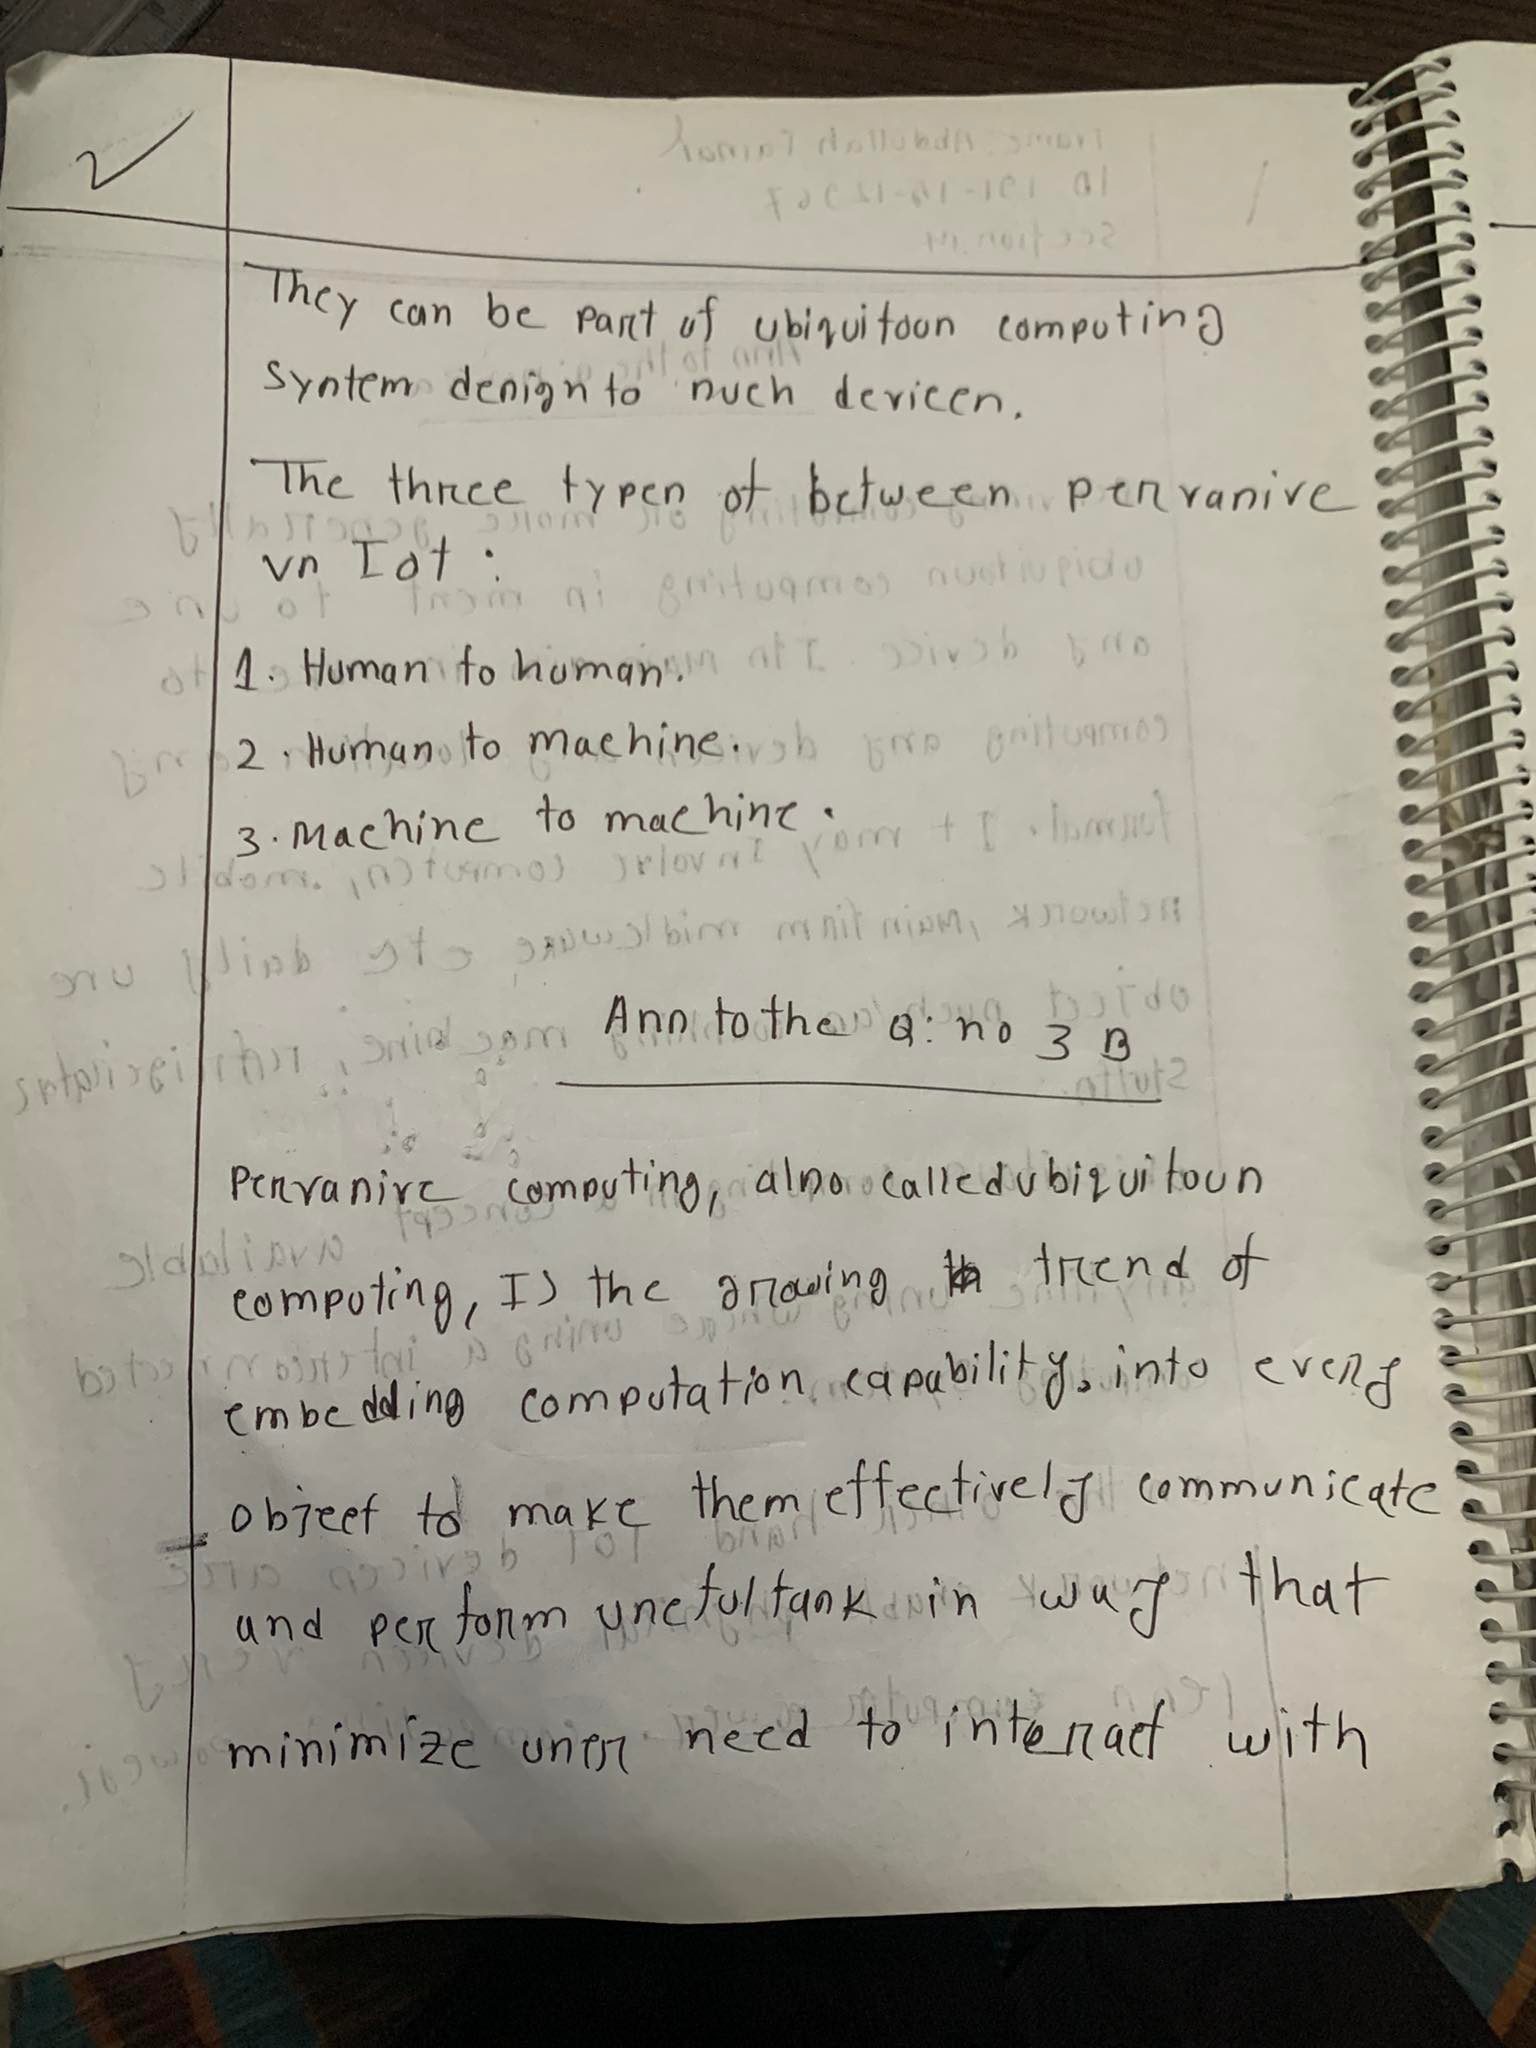 2
They can be part of ubiquitous computing
System design to such devices.
The three types of between pervasive
vs Iot :
1. Human to human.
2. Human to machine.
3. Machine to machine.
Ans to the Q: no 3 B
Pervasive computing, also called ubiquitous
computing, Is the growing trend of
embedding computation capability, into every
object to make them effectively communicate
and perform useful task in way that
minimize user need to interact with